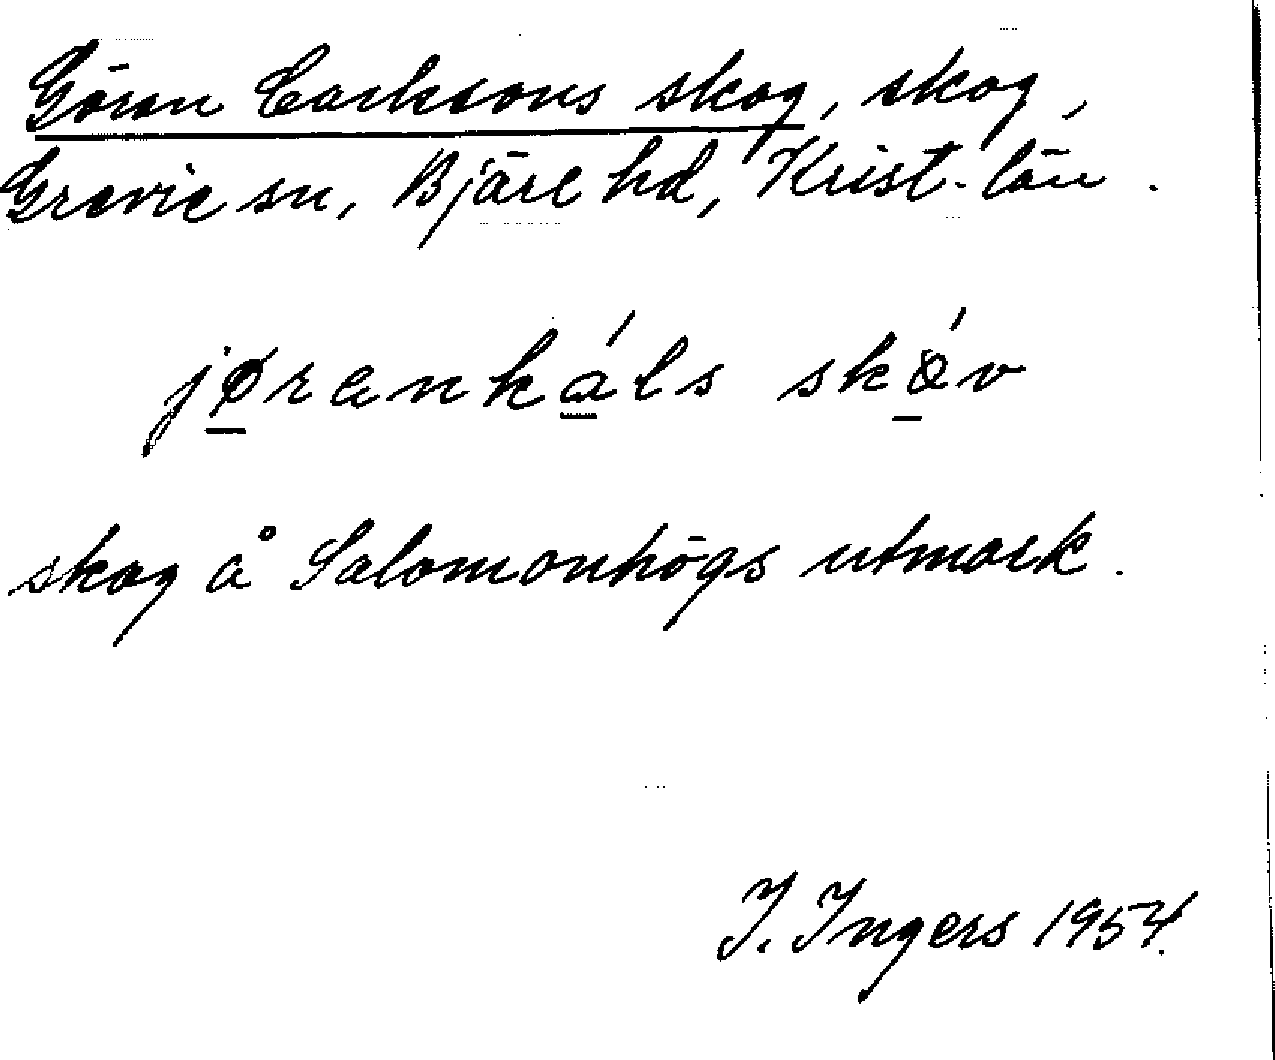 Göran Carlssons skog, skog,
Grevie sn, Bjäre hd, Krist. län.
jørankáls skóv
skog å Salomonhögs utmark.
I. Ingers 1954.